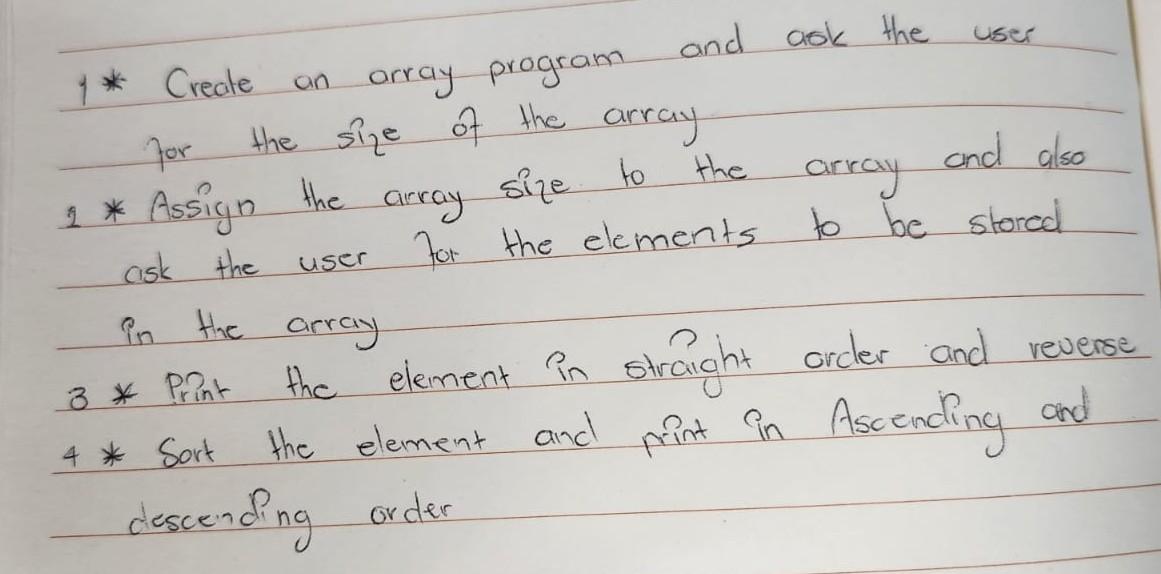 1 * Create an array program and ask the user
for the size of the array
2 * Assign the array size to the array and also
ask the user for the elements to be stored
in the array
3 * Print the element in straight order and reverse
4 * Sort the element and print in Ascending and
descending order